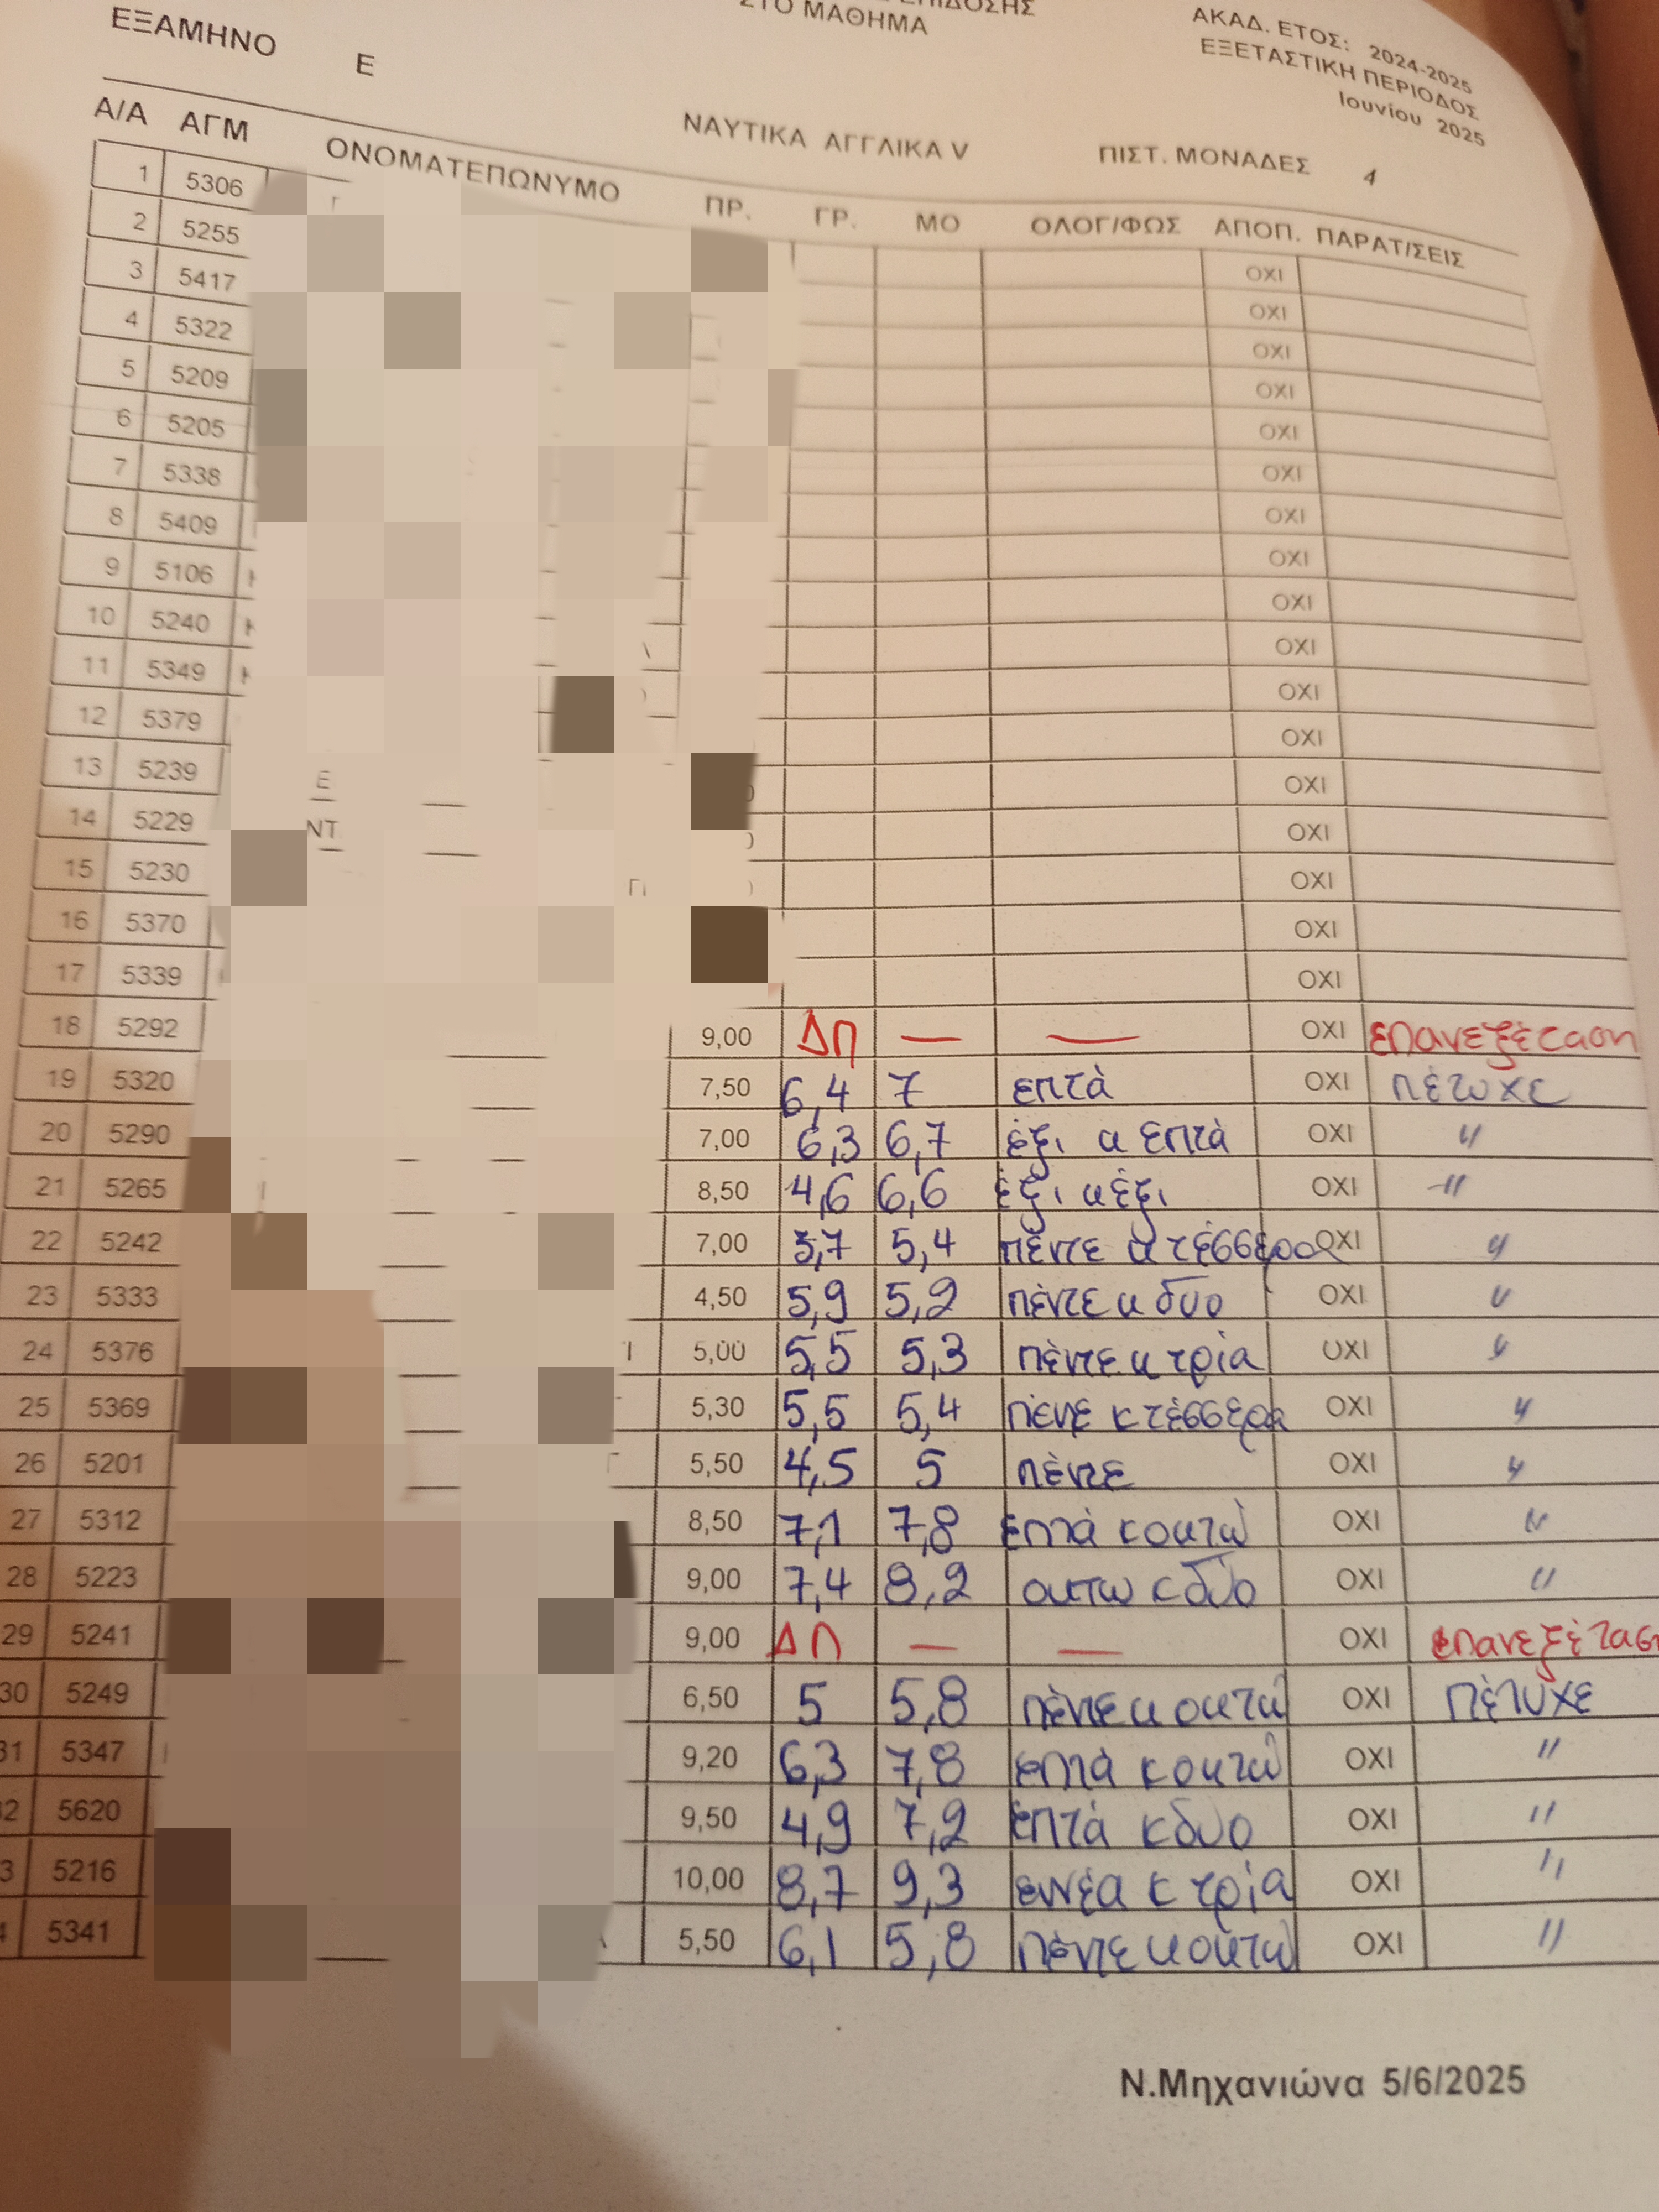 ΣΤΟ ΜΑΘΗΜΑ
ΕΞΑΜΗΝΟ Ε
ΑΚΑΔ. ΕΤΟΣ: 2024-2025
ΕΞΕΤΑΣΤΙΚΗ ΠΕΡΙΟΔΟΣ
Ιουνίου 2025
ΝΑΥΤΙΚΑ ΑΓΓΛΙΚΑ V ΠΙΣΤ. ΜΟΝΑΔΕΣ 4
Α/Α ΑΓΜ ΟΝΟΜΑΤΕΠΩΝΥΜΟ ΠΡ. ΓΡ. ΜΟ ΟΛΟΓ/ΦΩΣ ΑΠΟΠ. ΠΑΡΑΤ/ΣΕΙΣ
1 5306 ΟΧΙ
2 5255 ΟΧΙ
3 5417 ΟΧΙ
4 5322 ΟΧΙ
5 5209 ΟΧΙ
6 5205 ΟΧΙ
7 5338 ΟΧΙ
8 5409 ΟΧΙ
9 5106 ΟΧΙ
10 5240 ΟΧΙ
11 5349 ΟΧΙ
12 5379 ΟΧΙ
13 5239 ΟΧΙ
14 5229 ΟΧΙ
15 5230 ΟΧΙ
16 5370 ΟΧΙ
17 5339 ΟΧΙ
18 5292 9,00 ΔΠ — — ΟΧΙ επανεξέταση
19 5320 7,50 6,4 7 επτά ΟΧΙ πέτυχε
20 5290 7,00 6,3 6,7 έξι κ επτά ΟΧΙ "
21 5265 8,50 4,6 6,6 έξι κ έξι ΟΧΙ "
22 5242 7,00 3,7 5,4 πέντε κ τέσσερα ΟΧΙ "
23 5333 4,50 5,9 5,2 πέντε κ δυο ΟΧΙ "
24 5376 5,00 5,5 5,3 πέντε κ τρία ΟΧΙ "
25 5369 5,30 5,5 5,4 πέντε κ τέσσερα ΟΧΙ "
26 5201 5,50 4,5 5 πέντε ΟΧΙ "
27 5312 8,50 7,1 7,8 επτά κ οκτώ ΟΧΙ "
28 5223 9,00 7,4 8,2 οκτω κ δύο ΟΧΙ "
29 5241 9,00 ΔΠ — — ΟΧΙ επανεξέτασ
30 5249 6,50 5 5,8 πέντε κ οκτώ ΟΧΙ Πέτυχε
31 5347 9,20 6,3 7,8 επτά κ οκτώ ΟΧΙ "
2 5620 9,50 4,9 7,2 επτά κ δυο ΟΧΙ "
3 5216 10,00 8,7 9,3 εννέα κ τρία ΟΧΙ "
4 5341 5,50 6,1 5,8 πέντε κ οκτώ ΟΧΙ "
Ν.Μηχανιώνα 5/6/2025